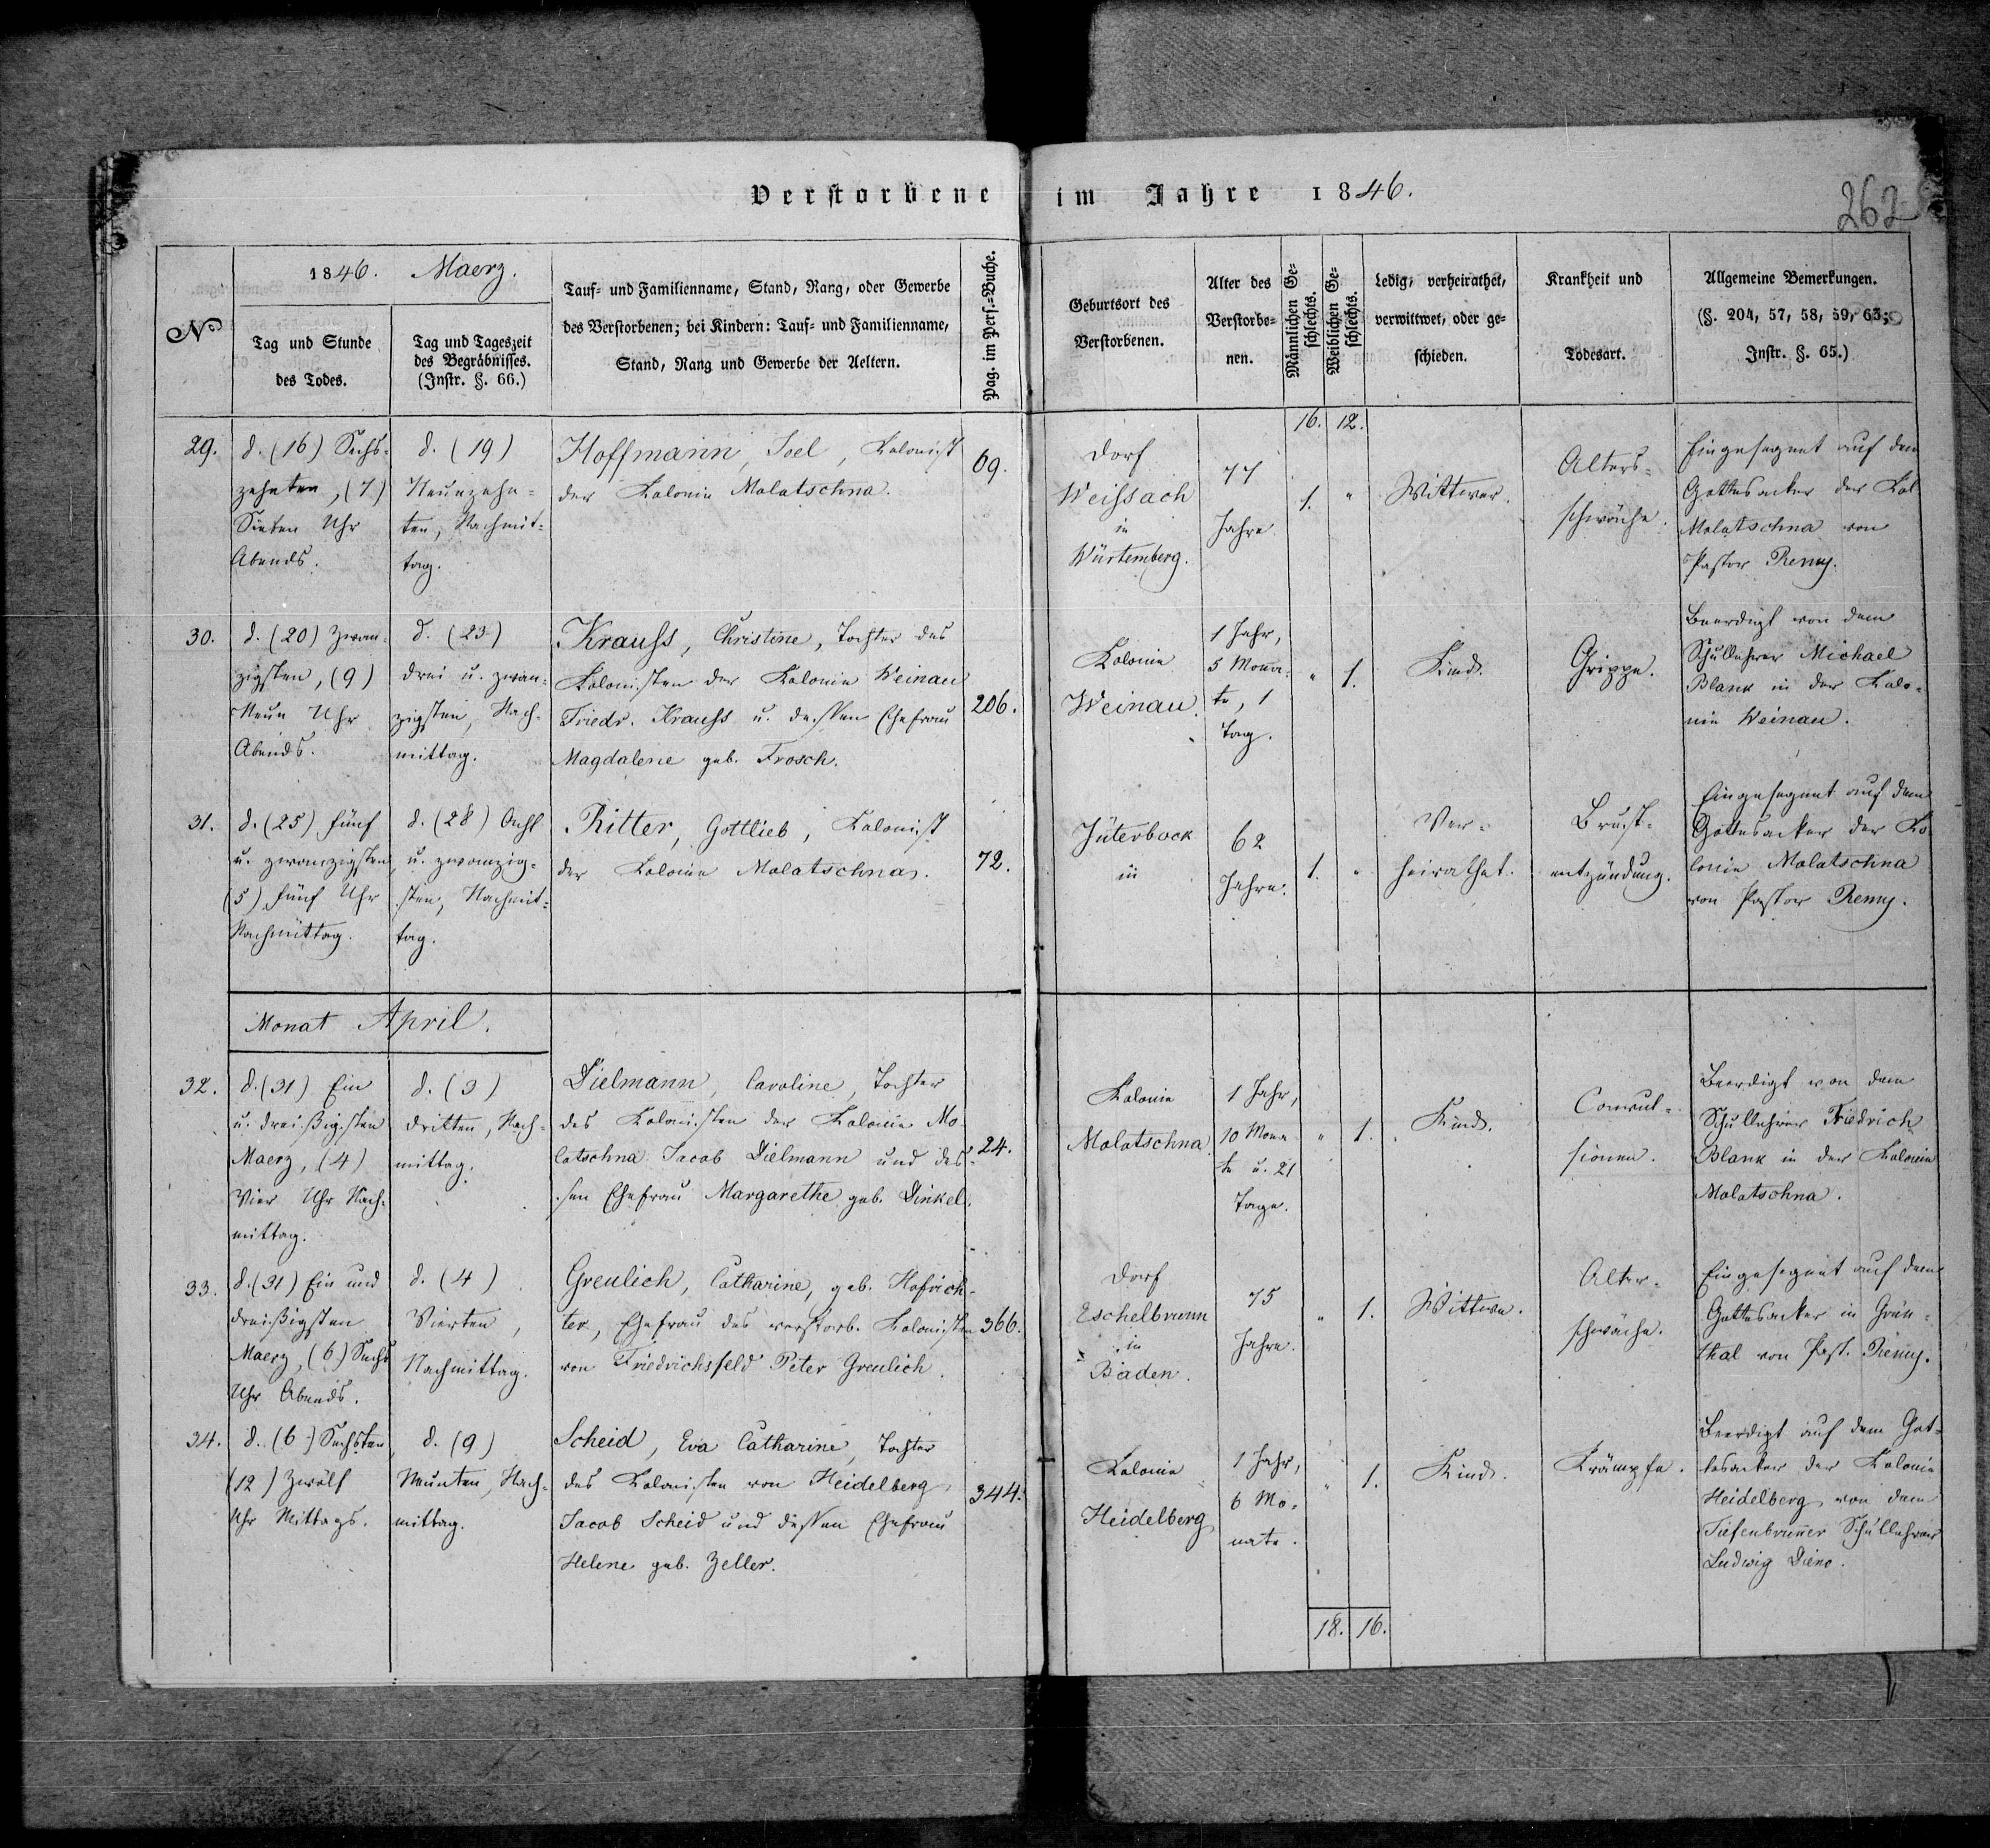 Verstorbene im Jahre 1846.
262
No
1846. Maerz.
Tag und Stunde
des Todes.
Tag und Tageszeit
des Begräbnisses.
(Instr. §. 66.)
Tauf- und Familienname, Stand, Rang, oder Gewerbe
des Verstorbenen; bei Kindern: Tauf- und Familienname,
Stand, Rang und Gewerbe der Aeltern.
Pag. im Pers.-Buche.
Geburtsort des
Verstorbenen.
Alter des
Verstorbe-
nen.
Männlichen Ge-
schlechts.
Weiblichen Ge-
schlechts.
Ledig, verheirathet,
verwittwet, oder ge-
schieden.
Krankheit und
Todesart.
Allgemeine Bemerkungen.
(§. 204, 57, 58, 59, 63;
Instr. §. 65.)
16. 12.
29.
d. (16) Sechs-
zehnten, (7)
Sieben Uhr
Abends.
d. (19)
Neunzehn-
ten, Nachmit-
tag.
Hoffmann, Joel, Kolonist
der Kolonie Molatschna.
69.
Dorf
Weissach
in
Würtemberg.
77
Jahre
1. "
Wittwer.
Alters-
schwäche.
Eingesegnet auf dem
Gottesacker der Kol
Molatschna von
Pastor Remy.
30.
d. (20) Zwan-
zigsten, (9)
Neun Uhr
Abends.
d. (23)
drei u. zwan-
zigsten, Nach-
mittag.
Krauss, Christine, Tochter des
Kolonisten der Kolonie Weinau
Friedr. Krauss u. dessen Ehefrau
Magdalene geb. Frosch.
206.
Kolonie
Weinau.
1 Jahr,
5 Mona-
te, 1
Tag.
" 1.
Kind.
Grippe.
Beerdigt von dem
Schullehrer Michael
Blank in der Kolo-
nie Weinau.
31.
d. (25) fünf
u. zwanzigsten
(5) fünf Uhr
Nachmittag.
d. (28) Acht
u. zwanzig-
sten, Nachmit-
tag.
Ritter, Gottlieb, Kolonist
der Kolonie Molatschna.
72.
Jüterbock
in
62
Jahre.
1. "
Ver-
heirathet.
Brust-
entzündung.
Eingesegnet auf dem
Gottesacker der Ko-
lonie Molatschna
von Pastor Remy.
Monat April.
32.
d. (31) Ein
u. dreissigsten
Maerz, (4)
Vier Uhr Nach-
mittag.
d. (3)
dritten, Nach-
mittag.
Dielmann, Caroline, Tochter
des Kolonisten der Kolonie Mo
latschna Jacob Dielmann und des-
sen Ehefrau Margarethe geb. Dinkel.
24.
Kolonie
Molatschna.
1 Jahr,
10 Mona
te u. 21
Tage.
" 1.
Kind.
Convul-
sionen.
Beerdigt von dem
Schullehrer Friedrich
Blank in der Kolonie
Molatschna.
33.
d. (31) Ein und
dreissigsten
Maerz, (6) Sechs
Uhr Abends.
d. (4)
Vierten,
Nachmittag.
Greulich, Catharine, geb. Hofrich-
ter, Ehefrau des verstorb. Kolonisten
von Friedrichsfeld Peter Greulich.
366.
Dorf
Eschelbrunn
in
Baden.
75
Jahre.
" 1.
Wittwe.
Alter-
schwäche.
Eingesegnet auf dem
Gottesacker in Grün-
thal von Past. Remy.
34.
d. (6) Sechsten
(12) Zwölf
Uhr Mittags.
d. (9)
Neunten, Nach-
mittag.
Scheid, Eva Catharine, Tochter
des Kolonisten von Heidelberg,
Jacob Scheid und dessen Ehefrau
Helene geb. Zeller.
344.
Kolonie
Heidelberg
1 Jahr,
6 Mo-
nate.
" 1.
Kind.
Krämpfe.
Beerdigt auf dem Got-
tesacker der Kolonie
Heidelberg, von dem
Tiefenbrunner Schullehrer
Ludwig Dieno.
18. 16.